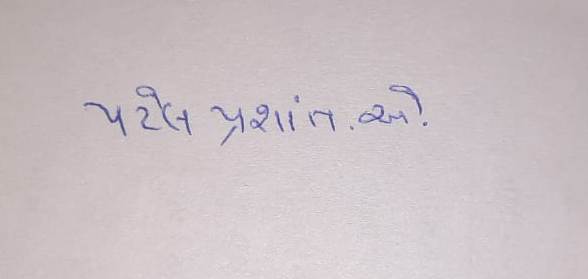 પટેલ પ્રશાંત. એ.